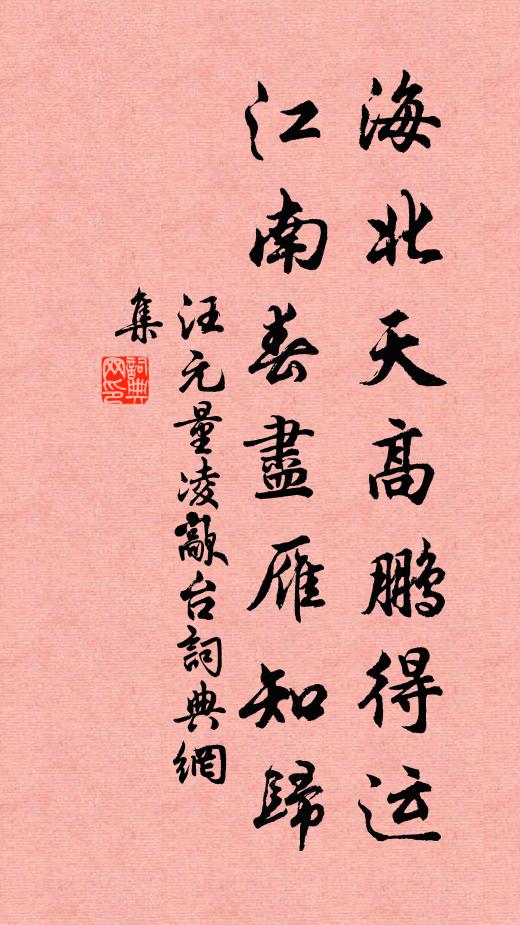 海北天高鹏得运
江南春盡雁知歸
汪元量凌歊台詞典網
集
詞典网印